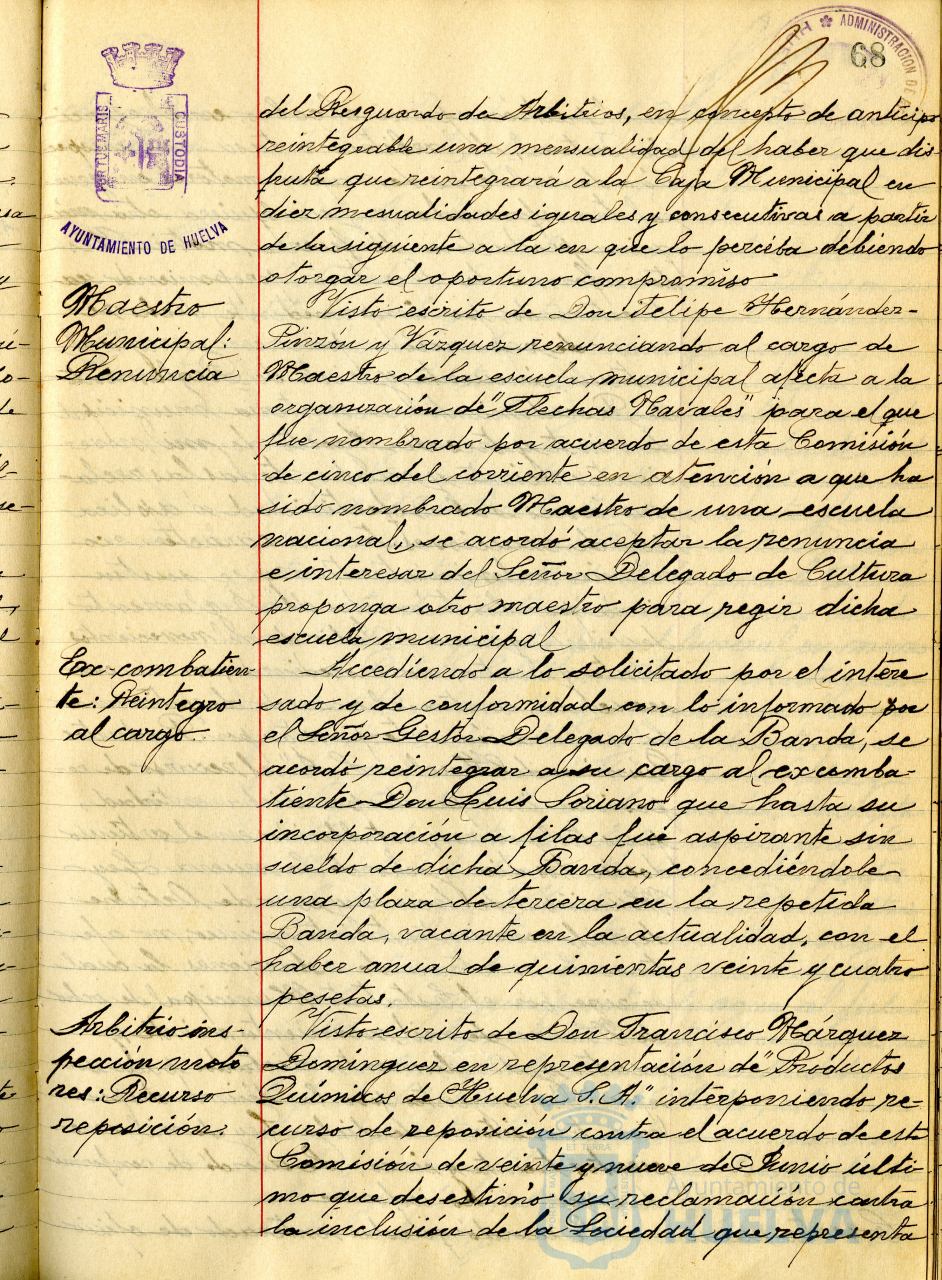 ADMINISTRACION DE
68
PORTUS MARIS
CUSTODIA
AYUNTAMIENTO DE HUELVA
del Resguardo de Arbitrios, en concepto de anticipo
reintegeable una mensualidad del haber que dis
fruta que reintegrará a la Caja Municipal en
diez mesualidades iguales y consecutivas a partir
de la siguiente a la en que lo perciba debiendo
otorgar el oportuno compromiso
Maestro
Municipal:
Renuncia
Visto escrito de Don Felipe Hernández-
Pinzón y Vázquez renunciando al cargo de
Maestro de la escuela municipal afecta a la
organización de "Flechas Navales" para el que
fue nombrado por acuerdo de esta Comisión
de cinco del corriente en atención a que ha
sido nombrado Maestro de una escuela
nacional, se acordó aceptar la renuncia
e interesar del Señor Delegado de Cultura
proponga otro maestro para regir dicha
escuela municipal
Ex-combatien-
te: Reintegro
al cargo.
Accediendo a lo solicitado por el intere
sado y de conformidad con lo informado por
el Señor Gestor Delegado de la Banda, se
acordó reintegrar a su cargo al excomba-
tiente Don Luis Soriano que hasta su
incorporación a filas fue aspirante sin
sueldo de dicha Banda, concediéndole
una plaza de tercera en la repetida
Banda, vacante en la actualidad, con el
haber anual de quinientas veinte y cuatro
pesetas.
Arbitrio ins-
pección moto
res: Recurso
reposición.
Visto escrito de Don Francisco Márquez
Domínguez en representación de "Productos
Químicos de Huelva S.A." interponiendo re-
curso de reposición contra el acuerdo de esta
Comisión de veinte y nueve de Junio últi-
mo que desestimó su reclamación contra
la inclusión de la Sociedad que representa
Ayuntamiento de
HUELVA